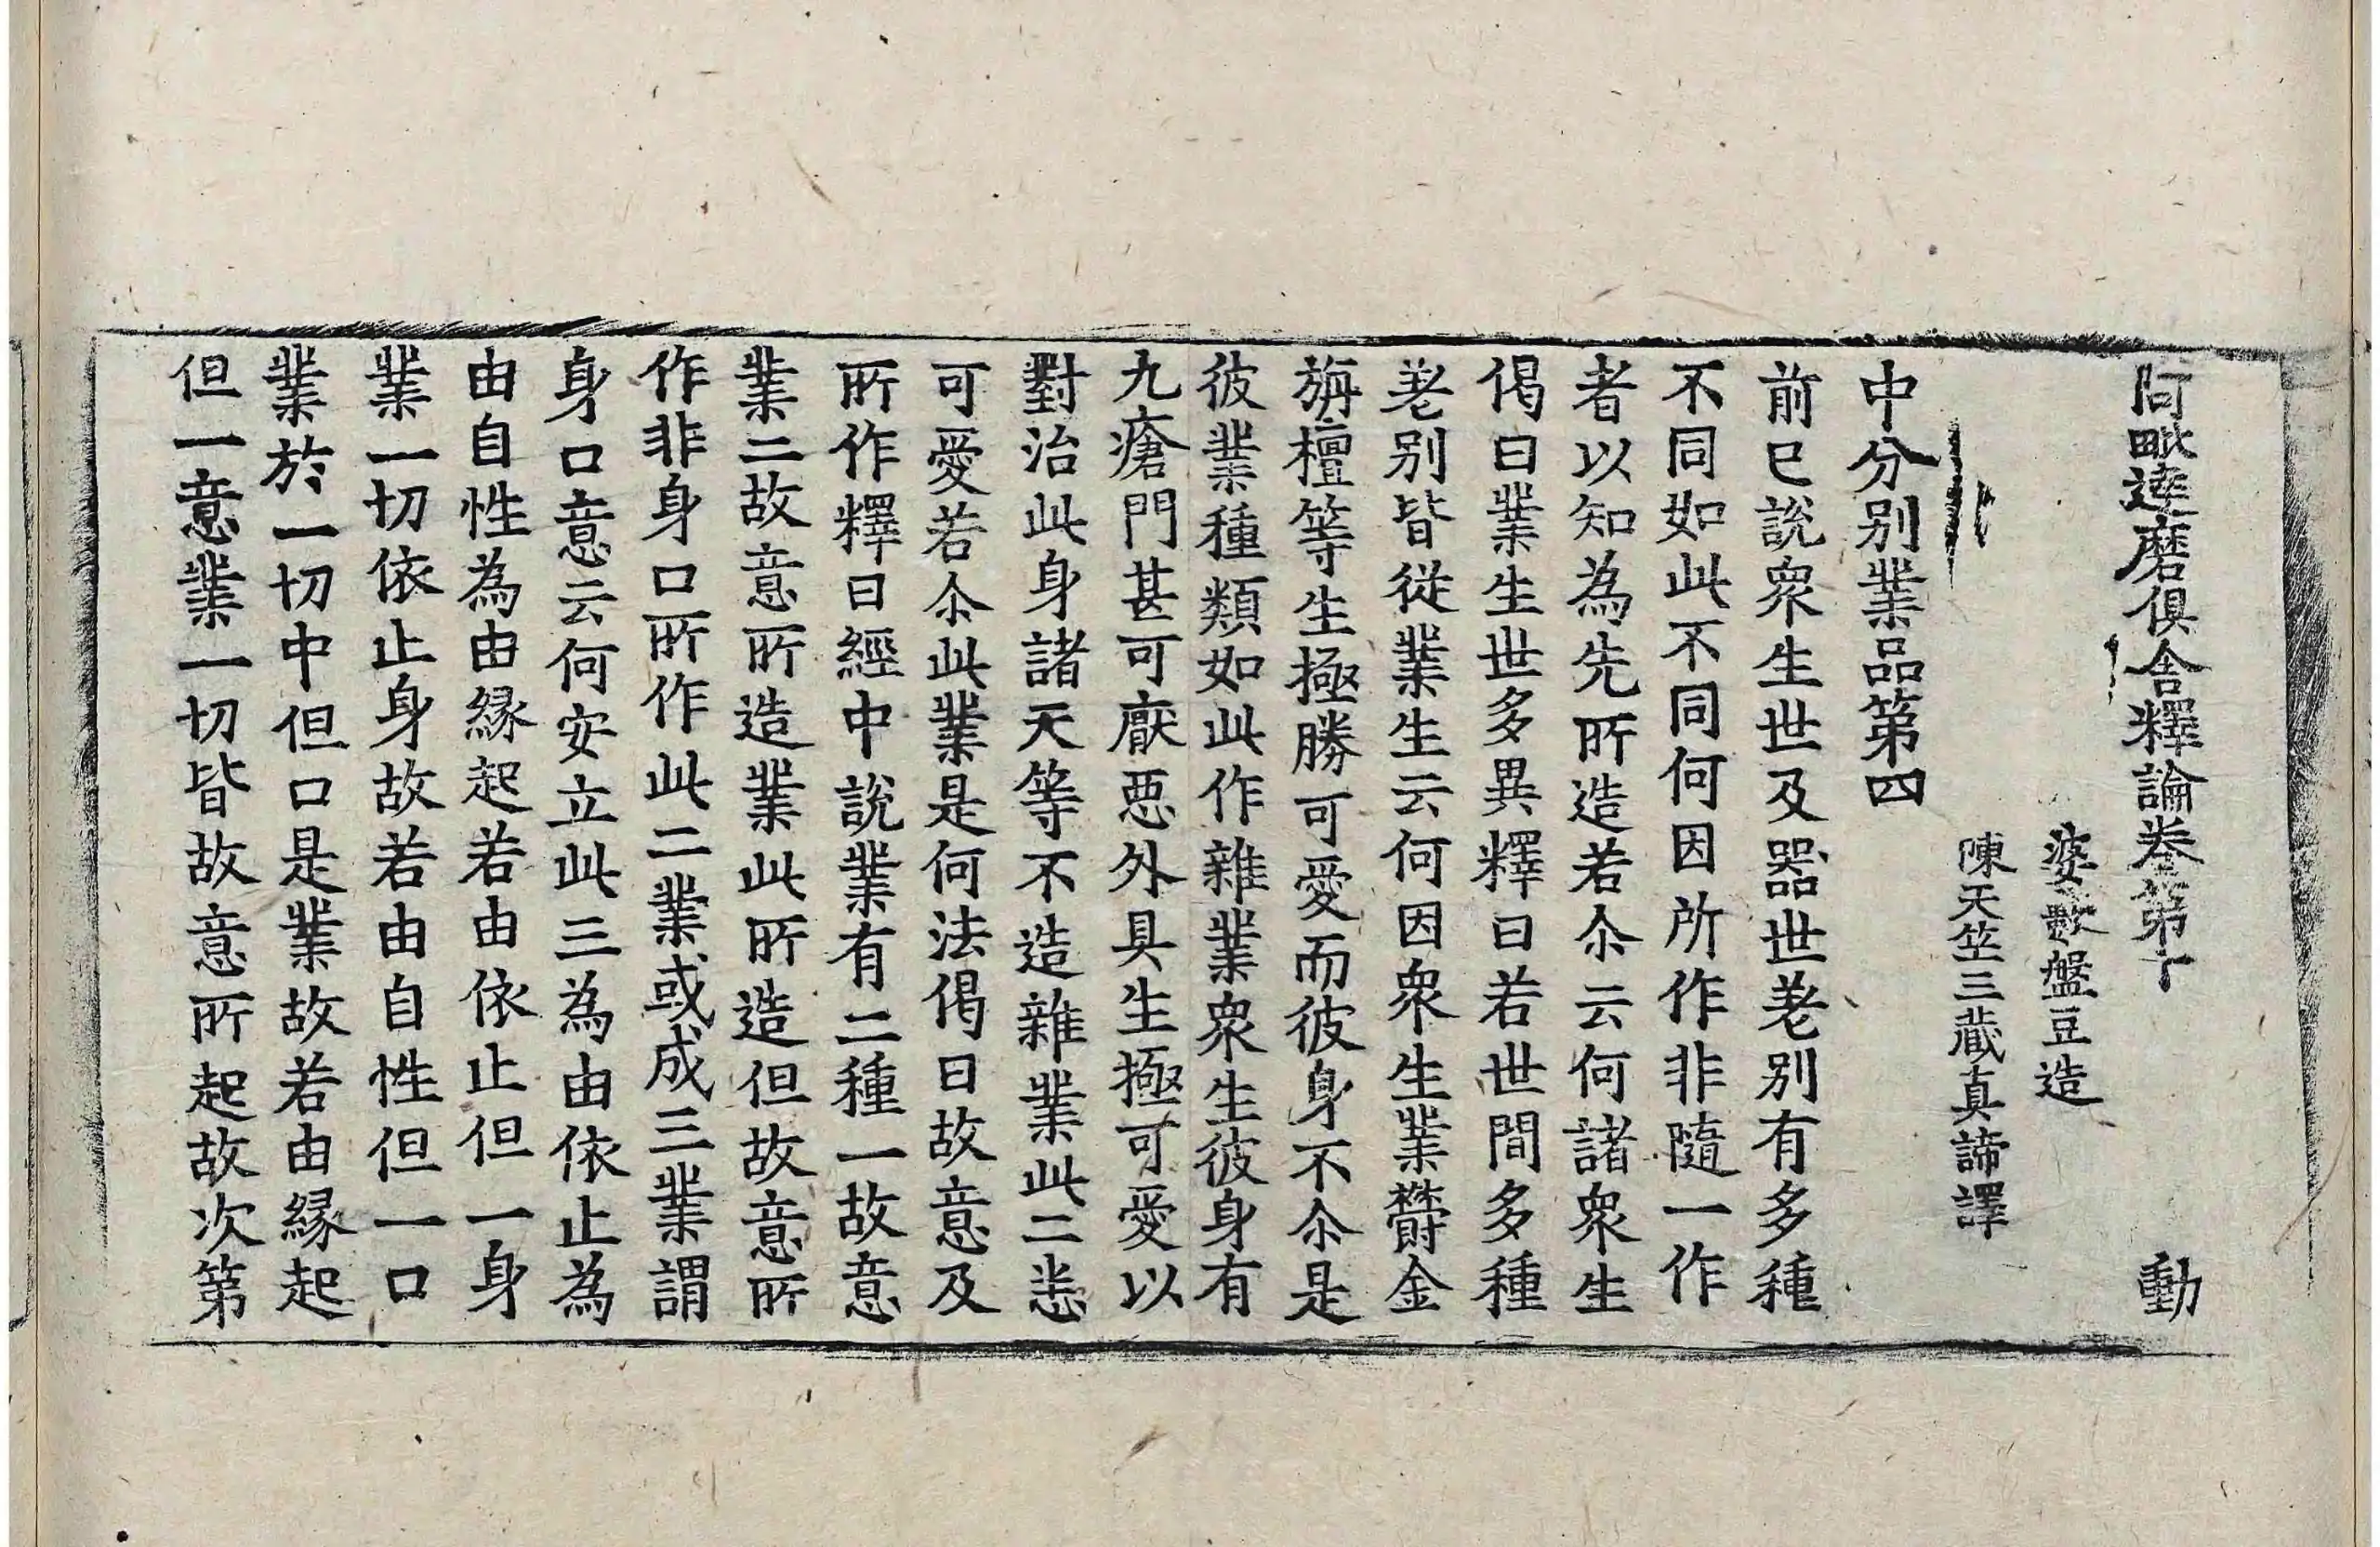 阿毗達磨俱舍釋論卷第 動
婆藪盤豆造
陳天竺三藏真諦譯
中分别業品第四
前已說衆生世及器世差别有多種
不同如此不同何因所作非隨一作
者以知為先所造若尒云何諸衆生
偈曰業生世多異釋曰若世間多種
差别皆從業生云何因衆生業欝金
旃檀等生極勝可愛而彼身不尒是
彼業種類如此作雜業衆生彼身有
九瘡門甚可厭惡外具生極可愛以
對治此身諸天等不造雜業此二恙
可愛若尒此業是何法偈曰故意及
所作釋曰經中說業有二種一故意
業二故意所造業此所造但故意所
作非身口所作此二業或成三業謂
身口意云何安立此三為由依止為
由自性為由緣起若由依止但一身
業一切依止身故若由自性但一口
業於一切中但口是業故若由緣起
但一意業一切皆故意所起故次第